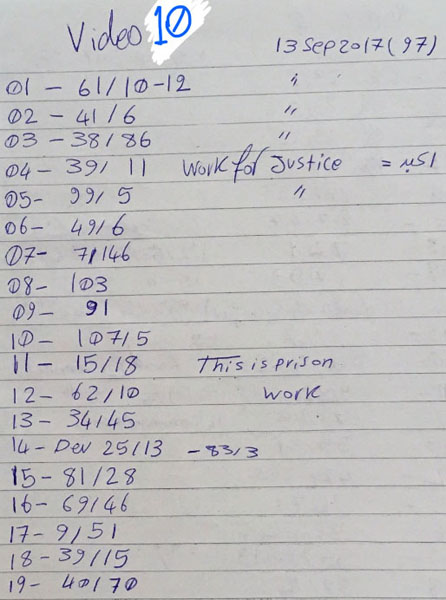 Video 10
13 Sep 2017 (97)
01 - 61/10-12 "
02 - 41/6 "
03 - 38/86 "
04 - 39/11 Work for Justice =
05- 99/5 "
06- 49/6
07- 7/146
08- 103
09- 91
10- 107/5
11- 15/18 This is prison
12- 62/10 work
13- 34/45
14- Dev 25/13 -83/3
15- 81/28
16- 69/46
17- 9/51
18- 39/15
19- 40/70